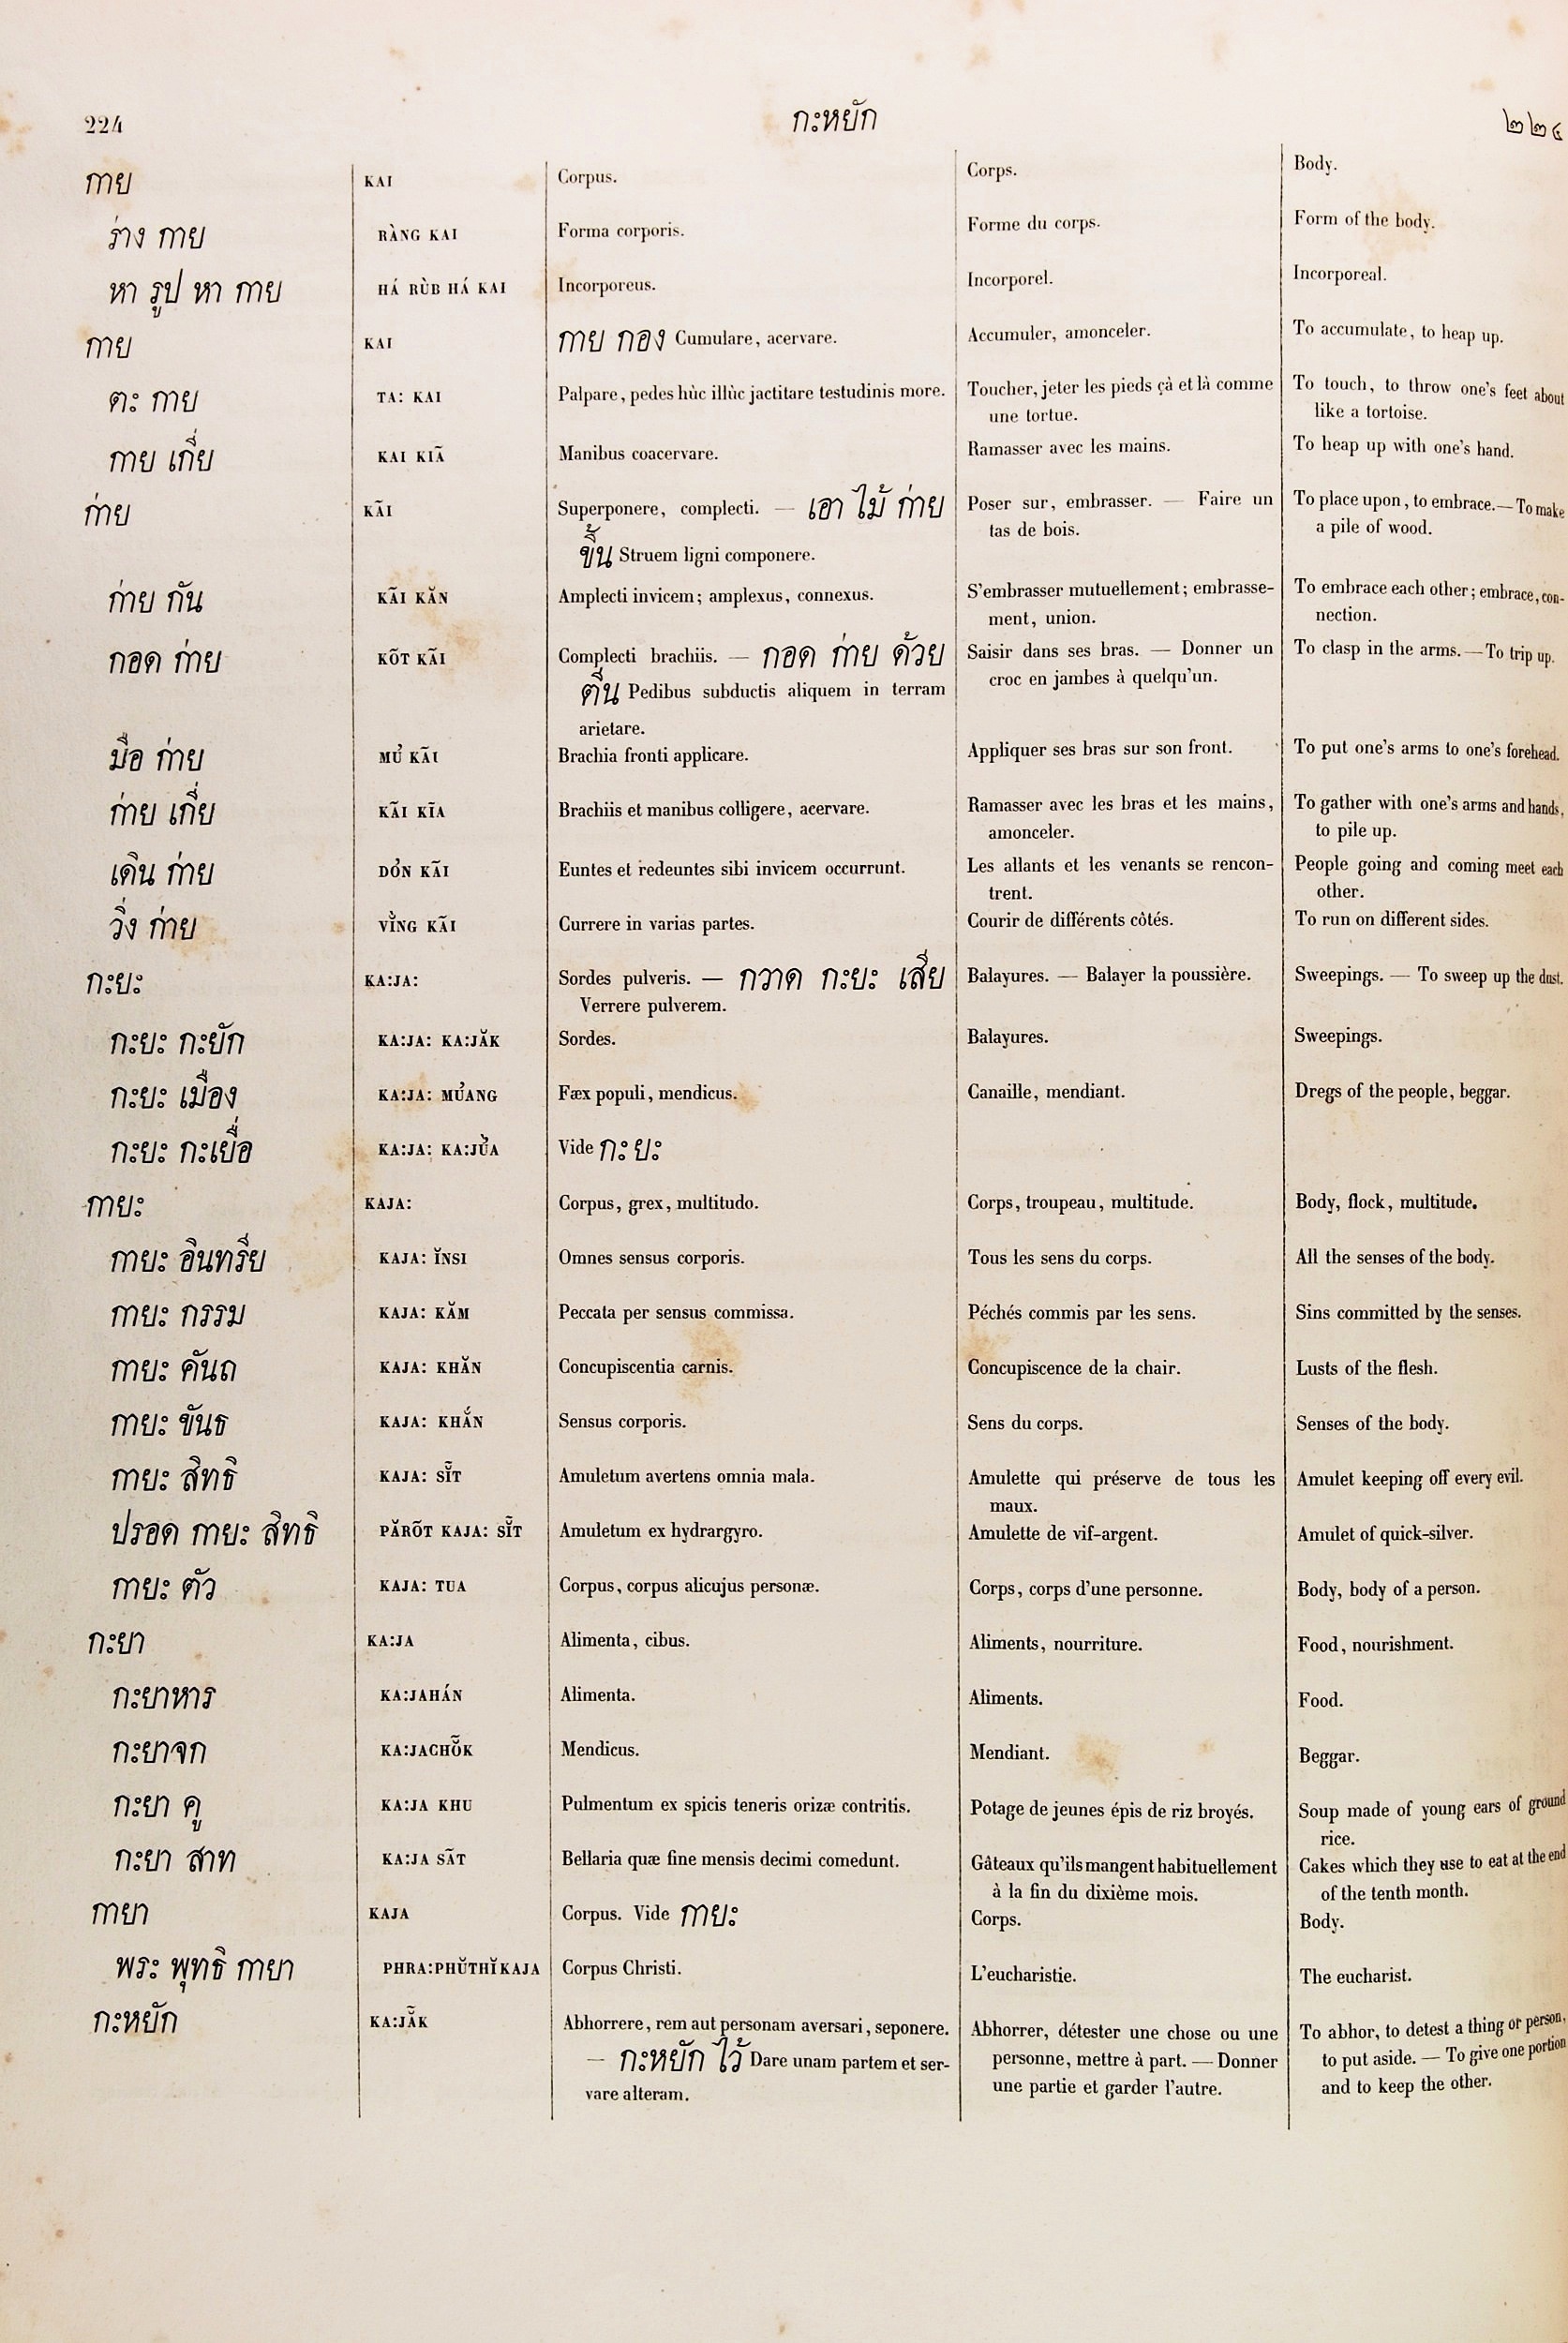 224 กะหยัก ๒๒๔
กาย KAI Corpus. Corps. Body.
ร่าง กาย RÀNG KAI Forma corporis. Forme du corps. Form of the body.
หา รูป หา กาย HÁ RÙB HÁ KAI Incorporeus. Incorporel. Incorporeal.
กาย KAI กาย กอง Cumulare, acervare. Accumuler, amonceler. To accumulate, to heap up.
ตะ กาย TA: KAI Palpare, pedes hùc illùc jactitare testudinis more. Toucher, jeter les pieds çà et là comme To touch, to throw one's feet about
une tortue. like a tortoise.
กาย เกี่ย KAI KIÃ Manibus coacervare. Ramasser avec les mains. To heap up with one's hand.
ก่าย KÃI Superponere, complecti. — เอา ไม้ ก่าย Poser sur, embrasser. — Faire un To place upon, to embrace.—To make
ขึ้น Struem ligni componere. tas de bois. a pile of wood.
ก่าย กัน KÃI KĂN Amplecti invicem; amplexus, connexus. S'embrasser mutuellement; embrasse- To embrace each other; embrace, con-
ment, union. nection.
กอด ก่าย KÕT KÃI Complecti brachiis. — กอด ก่าย ด้วย Saisir dans ses bras. — Donner un To clasp in the arms.—To trip up.
ตีน Pedibus subductis aliquem in terram croc en jambes à quelqu'un.
arietare.
มือ ก่าย MU̓ KÃI Brachia fronti applicare. Appliquer ses bras sur son front. To put one's arms to one's forehead.
ก่าย เกี่ย KÃI KĨA Brachiis et manibus colligere, acervare. Ramasser avec les bras et les mains, To gather with one's arms and hands,
amonceler. to pile up.
เดิน ก่าย DO̓N KÃI Euntes et redeuntes sibi invicem occurrunt. Les allants et les venants se rencon- People going and coming meet each
trent. other.
วิ่ง ก่าย VĬ̀NG KÃI Currere in varias partes. Courir de différents côtés. To run on different sides.
กะยะ KA:JA: Sordes pulveris. — กวาด กะยะ เสีย Balayures. — Balayer la poussière. Sweepings. — To sweep up the dust.
Verrere pulverem.
กะยะ กะยัก KA:JA: KA:JĂK Sordes. Balayures. Sweepings.
กะยะ เมือง KA:JA: MU̓ANG Fæx populi, mendicus. Canaille, mendiant. Dregs of the people, beggar.
กะยะ กะเยื่อ KA:JA: KA:JU̓̀A Vide กะยะ
กายะ KAJA: Corpus, grex, multitudo. Corps, troupeau, multitude. Body, flock, multitude.
กายะ อินทรีย KAJA: ĬNSI Omnes sensus corporis. Tous les sens du corps. All the senses of the body.
กายะ กรรม KAJA: KĂM Peccata per sensus commissa. Péchés commis par les sens. Sins committed by the senses.
กายะ คันถ KAJA: KHĂN Concupiscentia carnis. Concupiscence de la chair. Lusts of the flesh.
กายะ ขันธ KAJA: KHẮN Sensus corporis. Sens du corps. Senses of the body.
กายะ สิทธิ KAJA: SĬ̃T Amuletum avertens omnia mala. Amulette qui préserve de tous les Amulet keeping off every evil.
maux.
ปรอด กายะ สิทธิ PĂRÕT KAJA: SĬ̃T Amuletum ex hydrargyro. Amulette de vif-argent. Amulet of quick-silver.
กายะ ตัว KAJA: TUA Corpus, corpus alicujus personæ. Corps, corps d'une personne. Body, body of a person.
กะยา KA:JA Alimenta, cibus. Aliments, nourriture. Food, nourishment.
กะยาหาร KA:JAHÁN Alimenta. Aliments. Food.
กะยาจก KA:JACHŎ̃K Mendicus. Mendiant. Beggar.
กะยา คู KA:JA KHU Pulmentum ex spicis teneris orizæ contritis. Potage de jeunes épis de riz broyés. Soup made of young ears of ground
rice.
กะยา สาท KA:JA SÃT Bellaria quæ fine mensis decimi comedunt. Gâteaux qu'ils mangent habituellement Cakes which they use to eat at the end
à la fin du dixième mois. of the tenth month.
กายา KAJA Corpus. Vide กายะ Corps. Body.
พระ พุทธิ กายา PHRA:PHŬTHĬKAJA Corpus Christi. L'eucharistie. The eucharist.
กะหยัก KA:JẴK Abhorrere, rem aut personam aversari, seponere. Abhorrer, détester une chose ou une To abhor, to detest a thing or person,
— กะหยัก ไว้ Dare unam partem et ser- personne, mettre à part. — Donner to put aside. — To give one portion
vare alteram. une partie et garder l'autre. and to keep the other.